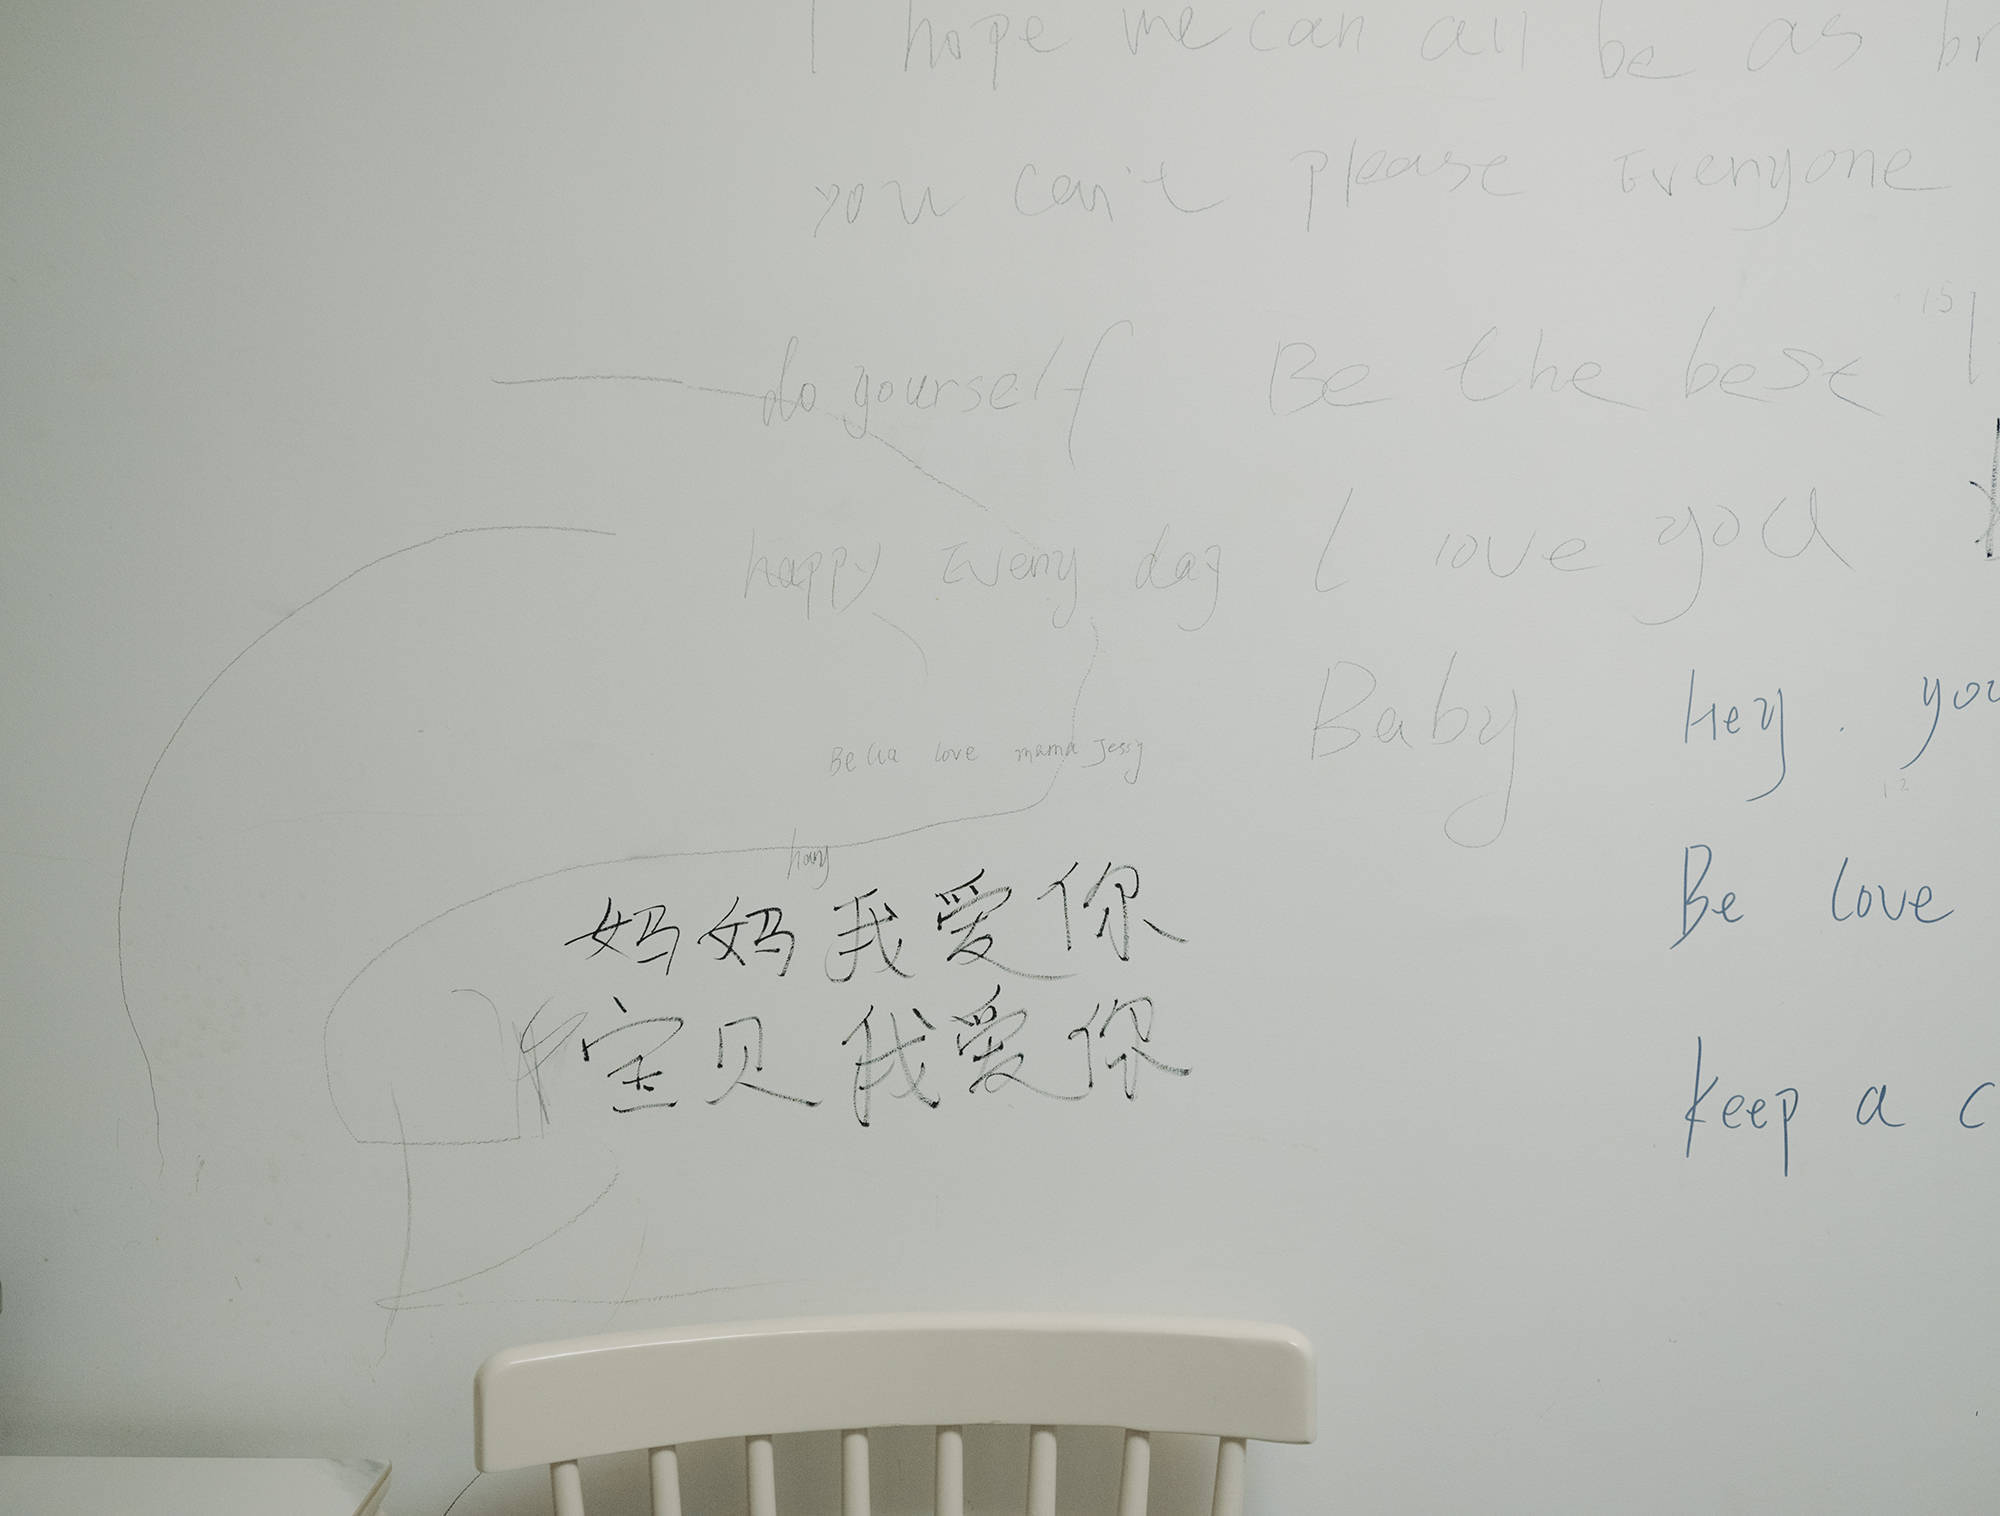 I hope we can all be as br
you can't please Everyone
do yourself Be the best
happy Every day I love you
Baby Hey. you
Bella love mama Jessy
Be love
妈妈我爱你
宝贝我爱你
Keep a c